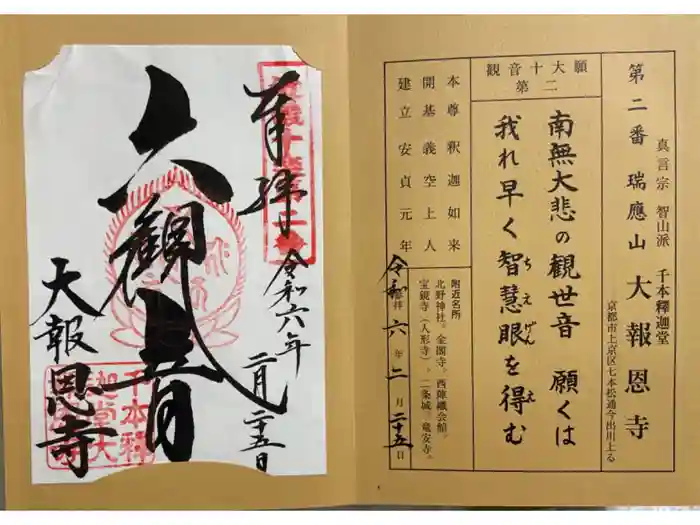 第二番 瑞應山 大報恩寺
真言宗 智山派 千本釋迦堂
京都市上京区七本松通今出川上る
観音十大願
第二
南無大悲の観世音 願くは
我れ早く智慧眼を得む
ちえげんえ
本尊 釈迦如来
開基 義空上人
建立 安貞元年
附近名所
北野神社。金閣寺。西陣織会館。
宝鏡寺(人形寺)。二条城。竜安寺。
令和六年二月二十五日
奉拝
令和六年
二月二十五日
六観音
大報恩寺
千本釋
迦堂大
報恩寺